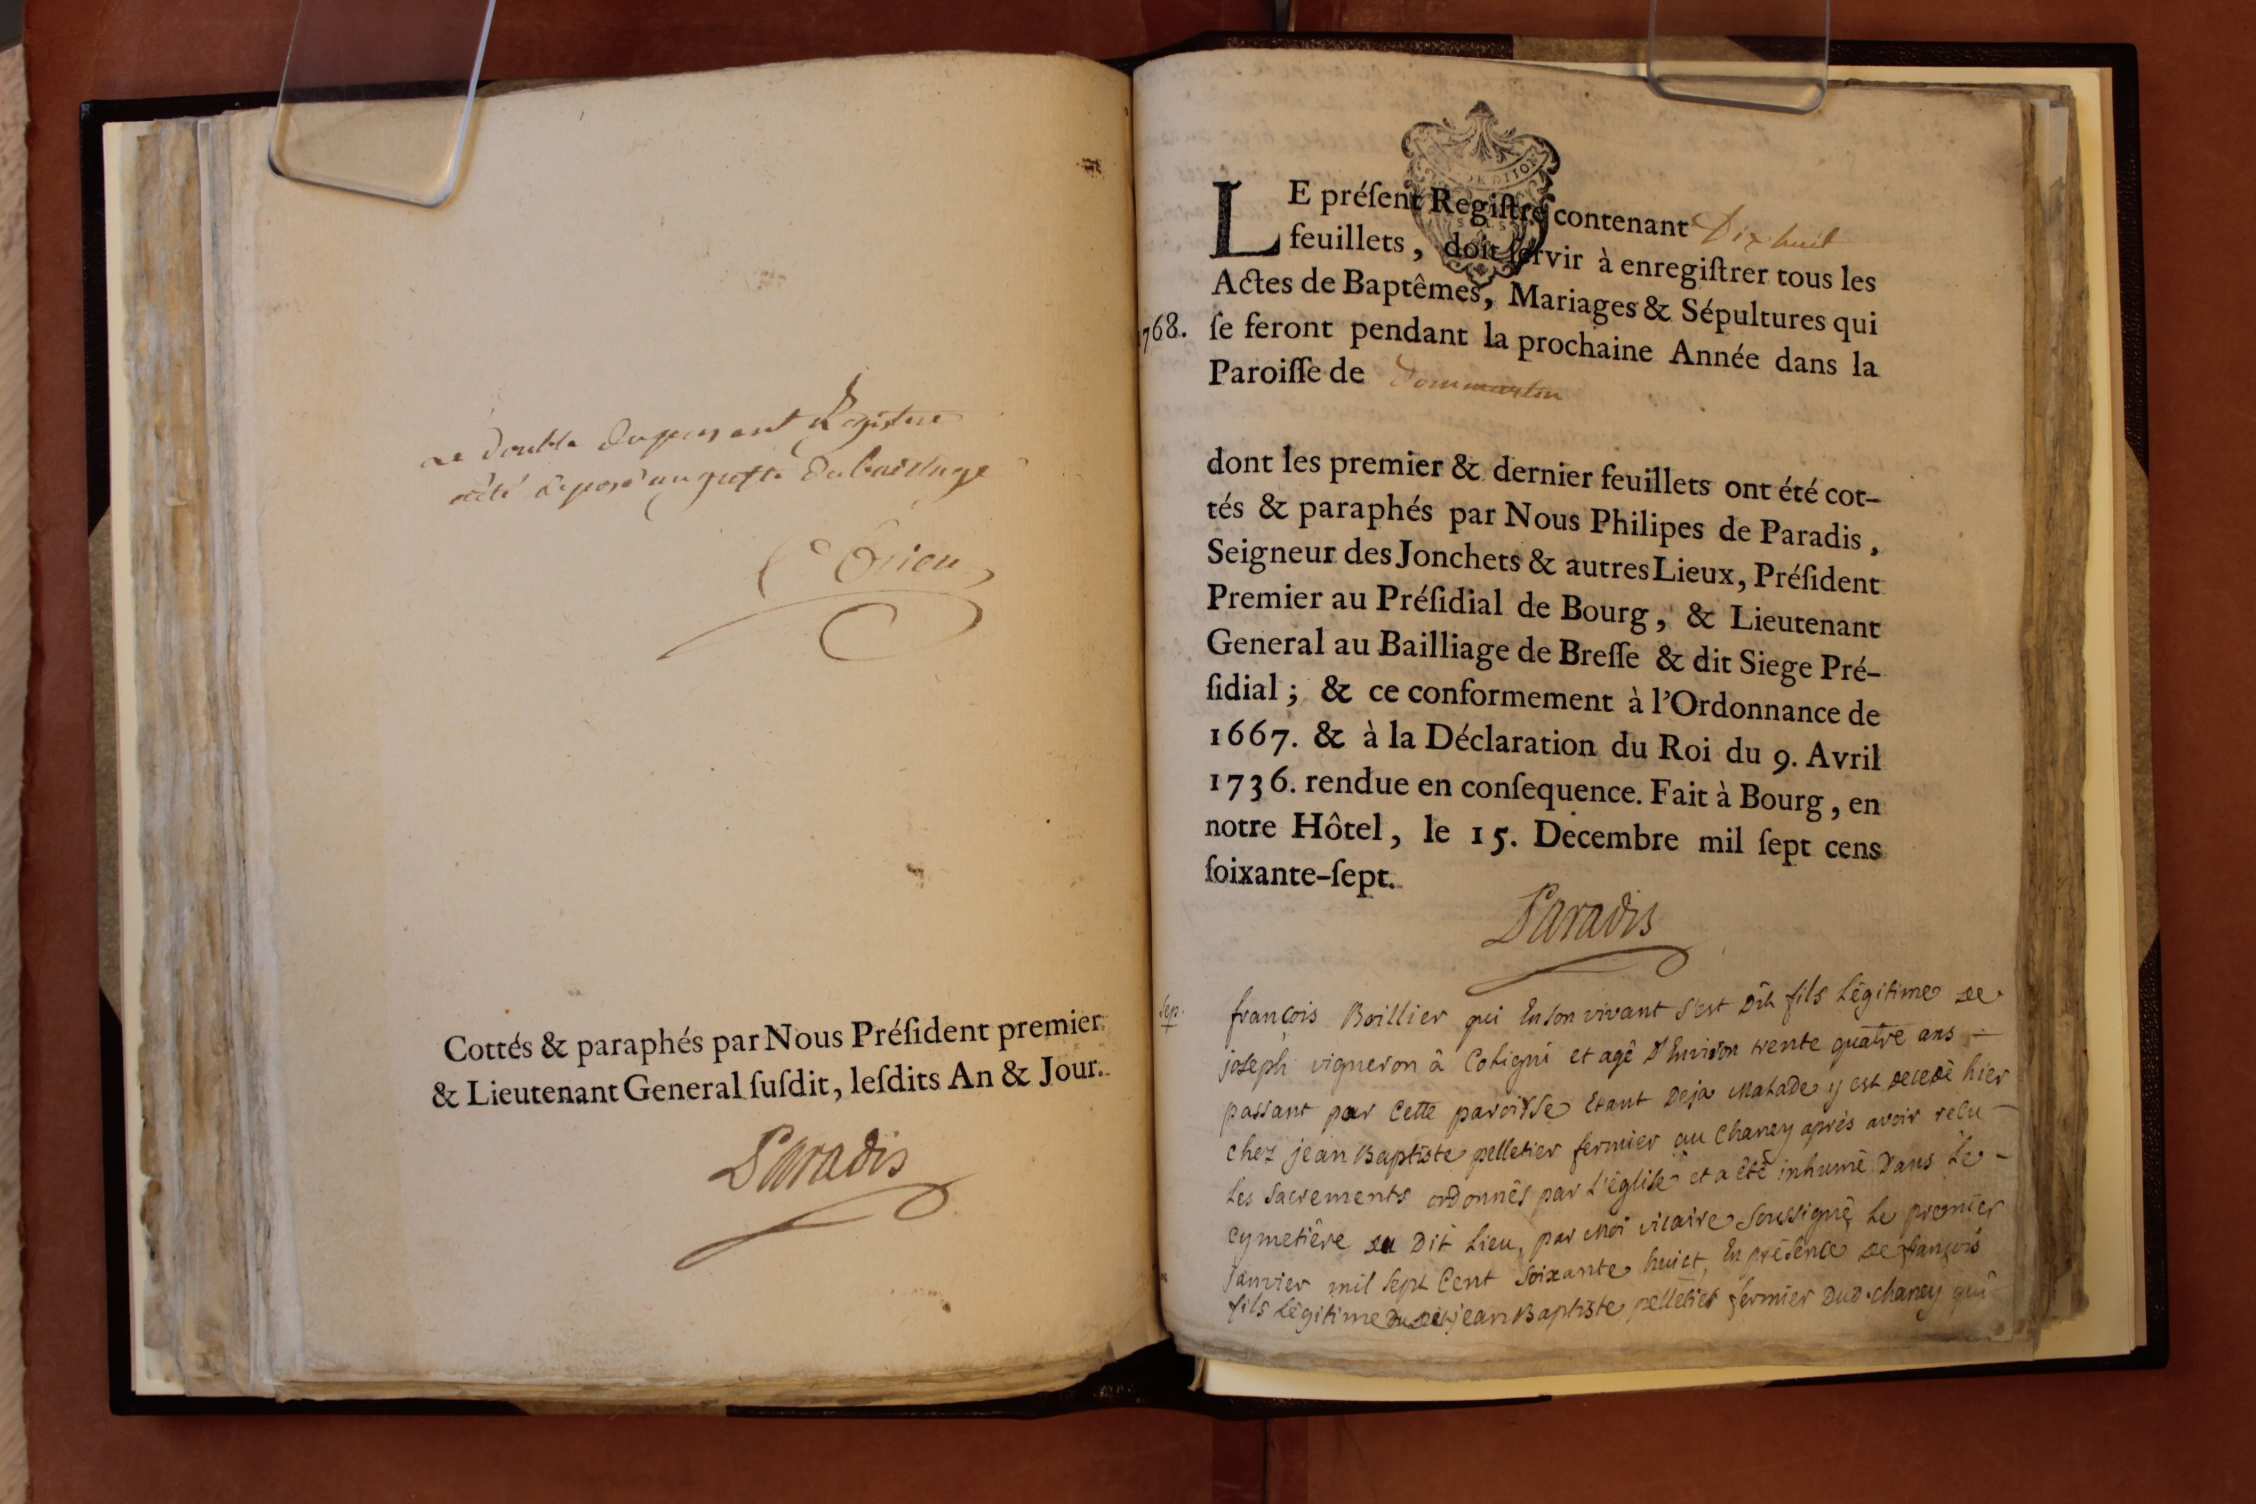 Le double du present Registre
a été déposé au greffe du bailliage
Cottés & paraphés par Nous Préſident premier
& Lieutenant General ſuſdit, leſdits An & Jour.
Paradis
LE préſent Regiſtre contenant Dix huit
feuillets, doit ſervir à enregiſtrer tous les
Actes de Baptêmes, Mariages & Sépultures qui
1768. ſe feront pendant la prochaine Année dans la
Paroiſſe de Dommartin
dont les premier & dernier feuillets ont été cot-
tés & paraphés par Nous Philipes de Paradis,
Seigneur des Jonchets & autres Lieux, Préſident
Premier au Préſidial de Bourg, & Lieutenant
General au Bailliage de Breſſe & dit Siege Pré-
ſidial; & ce conformement à l'Ordonnance de
1667. & à la Déclaration du Roi du 9. Avril
1736. rendue en conſequence. Fait à Bourg, en
notre Hôtel, le 15. Decembre mil ſept cens
ſoixante-ſept.
Paradis
Sep. françois Boillier qui En son vivant s'est Dit fils Légitime de
joseph vigneron à Coligni et agé d'Environ trente quatre ans
passant par cette paroisse Etant Deja Malade y est decedé hier
chez jean Baptiste pelletier fermier au Chaney après avoir reçu
Les Sacrements ordonnés par L'église et a été inhumé Dans Le
cymetière du Dit Lieu, par Moi vicaire Soussigné, Le premier
janvier mil Sept Cent Soixante huict, En présence de françois
fils Légitime du dit jean Baptiste pelletier fermier Dud. chaney qui